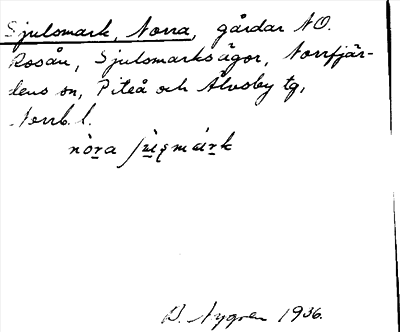 Sjulsmark, Norra, gårdar NO.
Rosån, Sjulsmarksägor, Norrfjär-
dens sn, Piteå och Älvsby tg,
Norrb. l.
nòra
B. Nygren 1936.